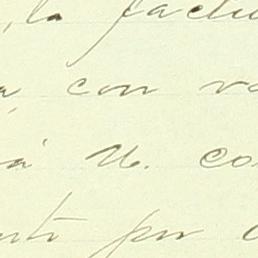 , la factu
a, con va
rá U. co
arte por